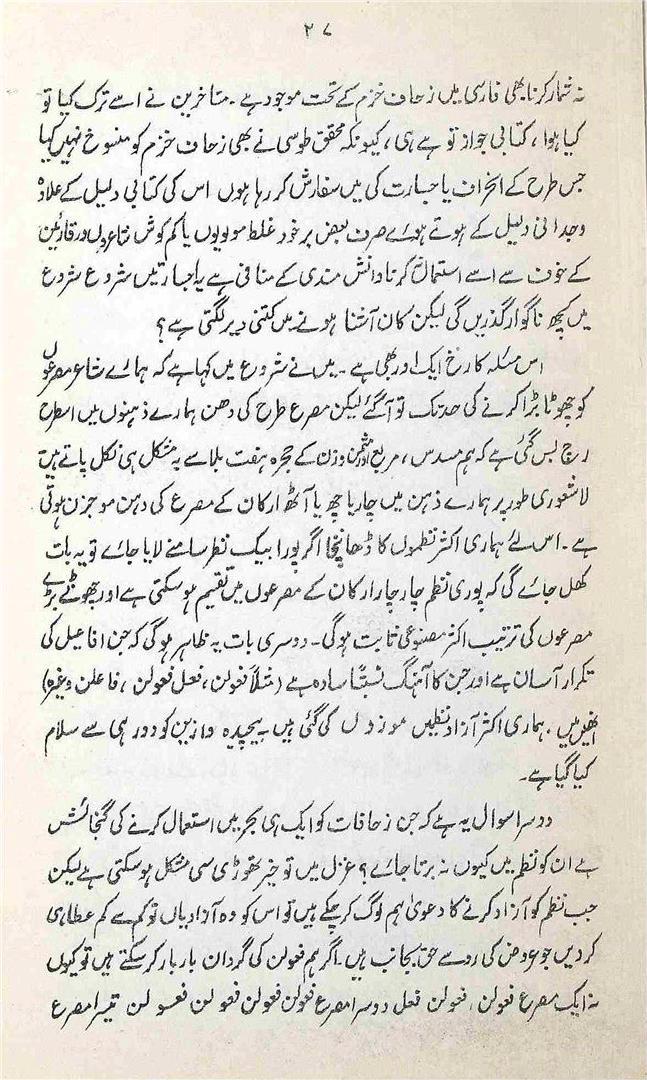 ۲۷
نہ شمار کرنا بھی فارسی میں زحاف خزم کے تحت موجود ہے۔ متاخرین نے اسے ترک کیا تو
کیا ہوا، کتابی جواز تو ہے ہی، کیونکہ محقق طوسی نے بھی زحاف خزم کو منسوخ نہیں کیا
جس طرح کے انحراف یا جسارت کی میں سفارش کر رہا ہوں اس کی کتابی دلیل کے علاوہ
وجدانی دلیل کے ہوتے ہوئے صرف بعض بر خود غلط مولویوں یا کم کوش شاعروں اور قارئین
کے خوف سے اسے استعمال نہ کرنا دانش مندی کے منافی ہے یہ اجازتیں شروع شروع
میں کچھ ناگوار گذریں گی لیکن کان آشنا ہونے میں کتنی دیر لگتی ہے؟
اس مسئلہ کا رخ ایک اور بھی ہے۔ میں نے شروع میں کہا ہے کہ ہمارے شاعر مصرعوں
کو چھوٹا بڑا کرنے کی حد تک تو آگئے لیکن مصرع طرح کی دھن ہمارے ذہنوں میں اس طرح
رچ بس گئی ہے کہ ہم مسدس، مربع اور مثمن وزن کے حجرہ ہفت بلا سے بہ مشکل ہی نکل پاتے ہیں
لاشعوری طور پر ہمارے ذہن میں چار یا چھ یا آٹھ ارکان کے مصرع کی دہن موجزن ہوتی
ہے۔ اس لئے ہماری اکثر نظموں کا ڈھانچا اگر پورا بیک نظر سامنے لایا جائے تو یہ بات
کھل جائے گی کہ پوری نظم چار چار ارکان کے مصرعوں میں تقیم ہو سکتی ہے اور چھوٹے بڑے
مصرعوں کی ترتیب اکثر مصنوعی ثابت ہوگی۔ دوسری بات یہ ظاہر ہوگی کہ جن افاعیل کی
تکرار آسان ہے اور جن کا آہنگ نسبتاً سادہ ہے (مثلاً فعولن، فعل فعولن، فاعلن وغیرہ)
انھیں میں، ہماری اکثر آزاد نظمیں موزوں کی گئی ہیں۔ پیچیدہ وازین کو دور ہی سے سلام
کیا گیا ہے۔
دوسرا سوال یہ ہے کہ جن زحافات کو ایک ہی بحر میں استعمال کرنے کی گنجائش
ہے ان کو نظم میں کیوں نہ برتا جائے؟ غزل میں تو خیر تھوڑی سی مشکل ہو سکتی ہے لیکن
جب نظم کو آزاد کرنے کا دعویٰ ہم لوگ کر چکے ہیں تو اس کو وہ آزادیاں تو کم سے کم عطا ہی
کر دیں جو عروض کی رو سے حق بجانب ہیں۔ اگر ہم فعولن کی گردان بار بار کر سکتے ہیں تو کیوں
نہ ایک مصرع فعولن، فعولن فعل دوسرا مصرع فعولن فعولن فعولن فعولن تیسرا مصرع